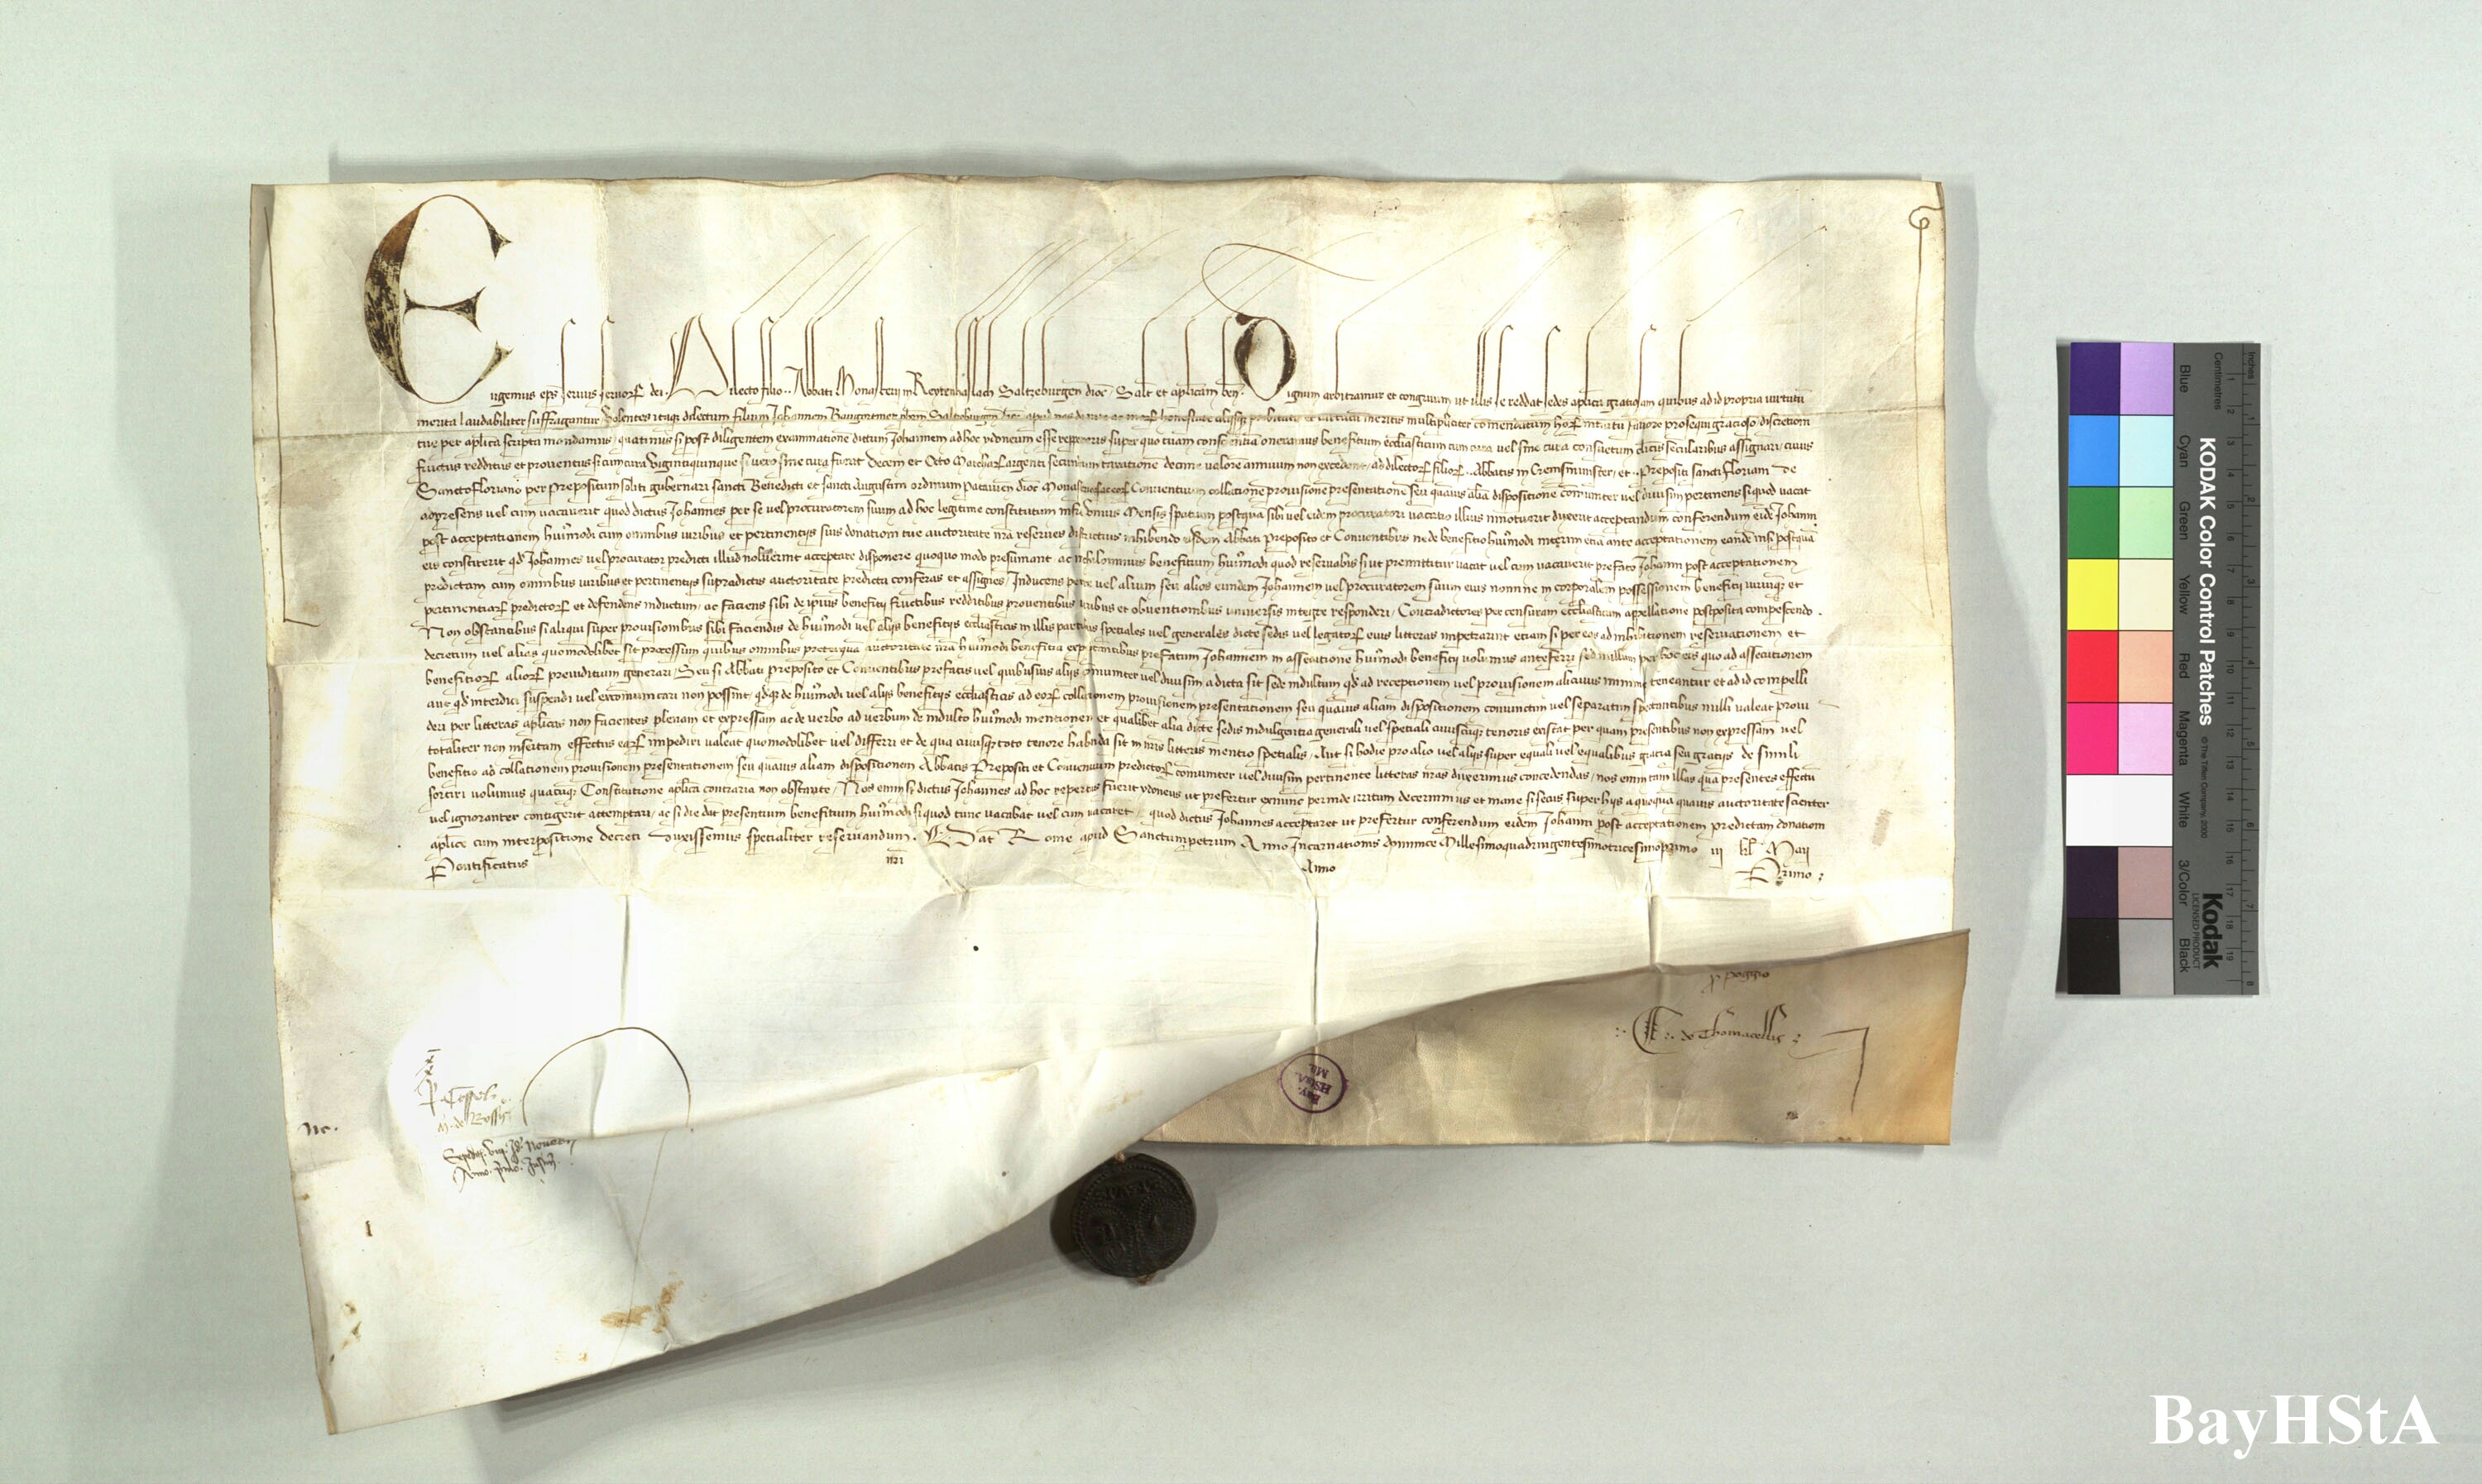 Eugenius eps servus servorum dei. Dilecto filio .. Abbati Monasterii in Reytenhaslach Saltzeburgen dioc Salt et aplicam ben. Dignum arbitramur et congruum ut illis se reddat sedes aplica gratiosam quibus ad id propria virtutum
merita laudabiliter suffragantur Volentes itaqz dilectum filium Johannem multipliciter comendatum horum intuitu favore prosequi gratioso discretioni
tue per aplica scripta mandamus quatinus si post diligentem examinatione dictum Johannem ad hoc ydoneum esse reppereris super quo tuam conscientia oneramus beneficium ecclesiasticum cum cura vel sine cura consuetum clericis secularibus assignari cuius
fructus redditus et proventus si cum cura vigintiquinque si vero sine cura fuerit Decem et Octo Marcharum argenti secundum taxatione decime valore annuum non excedant ad dilectorum filiorum .. Abbatis in Cremsmunster et .. Prepositi sancti Floriani de
Sancto Floriano per Prepositum soliti gubernari sancti Benedicti et sancti Augustini ordinum Patavien dioc Monasteriorum Conventuum collatione provisione presentatione seu quavis alia dispositione comuniter vel divisim pertinens siquod vacat
ad presens vel cum vacaverit quod dictus Johannes per se vel procuratorem suum ad hoc legitime constitutum infra unius Mensis spatium postqua sibi vel eidem procuratori vacatio illius innotuerit duxerit acceptandum conferendum eide Johanni
post acceptationem huiusmodi cum omnibus iuribus et pertinentiis suis donationi tue auctoritate nra reserves districtius inhibendo eisdem Abbati Preposito et Conventibus ne de beneficio huiusmodi interim etia ante acceptationem eande nisi postqua
eis constiterit qd Johannes vel procurator predicti illud noluerint acceptare disponere quoquo modo presumant ac nichilominus beneficium huiusmodi quod reservabis si ut premittitur vacat vel cum vacaverit prefato Johanni post acceptationem
predictam cum omnibus iuribus et pertinentiis supradictis auctoritate predicta conferas et assignes Inducens per te vel alium seu alios eundem Johannem vel procuratorem suum eius nomine in corporalem possessionem beneficii iuriumqz et
pertinentiarum predictorum et defendens inductum ac faciens sibi de ipsius beneficii fructibus redditibus proventibus iuribus et obventionibus universis integre responderi Contradictores per censuram ecclesiasticam appellatione postposita compescendo .
Non obstantibus si aliqui super provisionibus sibi faciendis de huiusmodi vel aliis beneficiis ecclesiasticis in illis partibus speciales vel generales dicte sedis vel legatorum eius litteras impetrarint etiam si per eos ad inhibitionem reservationem et
decretum vel alias quomodolibet sit processum quibus omnibus preterqua auctoritate nra huiusmodi beneficia expectantibus prefatum Johannem in assecutione huiusmodi beneficii volumus anteferri sed nullum per hoc eis quo ad assecutionem
beneficiorum aliorum preiudicium generari Seu si Abbati Preposito et Conventibus prefatis vel quibusvis aliis comuniter vel divisim a dicta sit sede indultum qd ad receptionem vel provisionem alicuius minime teneantur et ad id compelli
aut qd interdici suspendi vel excomunicari non possint qdqz de huiusmodi vel aliis beneficiis ecclesiasticis ad eorum collationem provisionem presentationem seu quavis aliam dispositionem coniunctim vel separatim spectantibus nulli valeat provi
deri per litteras aplicas non facientes plenam et expressam ac de verbo ad verbum de indulto huiusmodi mentionem et qualibet alia dicte sedis indulgentia generali vel speciali cuiuscuqz tenoris existat per quam presentibus non expressam vel
totaliter non insertam effectus earum impediri valeat quomodolibet vel differri et de qua cuiusqz toto tenore habenda sit in nris litteris mentio specialis Aut si hodie pro alio vel aliis super equali vel equalibus gratia seu gratiis de simili
beneficio ad collationem provisionem presentationem seu quavis aliam dispositionem Abbatis Prepositi et Conventuum predictorum comuniter vel divisim pertinente litteras nras duxerimus concedendas nos enim tam illas qua presentes effectu
sortiri volumus quacuqz Constitutione aplica contraria non obstante Nos enim si dictus Johannes ad hoc repertus fuerit ydoneus ut prefertur exnunc perinde irritum decernimus et inane si secus super hiis a quoqua quavis auctoritate scienter
vel ignoranter contigerit attemptari ac si die dat presentium beneficium huiusmodi siquod tunc vacabat vel cum vacaret quod dictus Johannes acceptaret ut prefertur conferendum eidem Johanni post acceptationem predictam donationi
aplice cum interpositione decreti duxissemus specialiter reservandum . Dat Rome apud Sanctumpetrum Anno Incarnationis dominice Millesimoquadringentesimotricesimoprimo iii kl Maii
Pontificatus nri Anno Primo
p poggio
de Thomacellis
BayHStA
KODAK Color Control Patches
© The Tiffen Company, 2000
Kodak
LICENSED PRODUCT
Blue Cyan Green Yellow Red Magenta White 3/Color Black
Centimetres
Inches